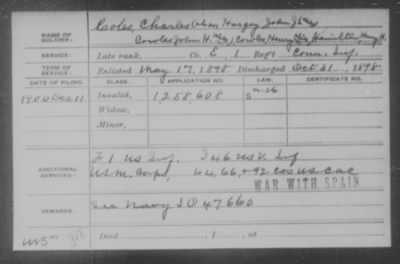 NAME OF SOLDIER:
Coles, Charles (alias Harpey, John J.
Cowles John H. alias), Cowles, Henry alias Hamilton, Henry H.
SERVICE:
Late rank, Co. E, 1 Reg't Conn. Inf.
TERM OF SERVICE:
Enlisted May 17, 1898 Discharged Oct 31, 1898
DATE OF FILING. CLASS. APPLICATION NO. LAW. CERTIFICATE NO.
1900 Dec 11 Invalid, 1,258,608
Widow,
Minor,
ADDITIONAL SERVICES:
F 1 US Inf. I 46 US V. Inf
US M. Corps, 64, 66, + 92 Cos US CAC
WAR WITH SPAIN
REMARKS:
See Navy I O 47660
Died , 1 , at